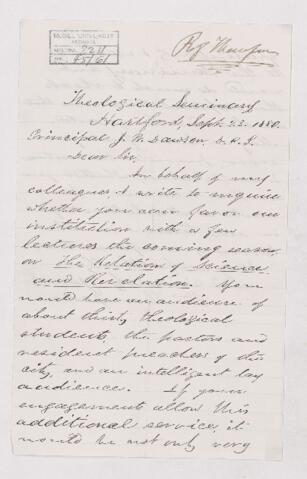 McGILL UNIVERSITY
ARCHIVES
ACC. NO. 2211
REF. 45/61
Theological Seminary
Hartford, Sept. 23. 1880.
Principal J. W. Dawson,
Dear Sir,
In behalf of my
colleagues, I write to inquire
whether you can favor our
institution with a few
lectures the coming season,
on the Relation of Science
and Revelation. You
would have an audience of
about thirty theological
students, the pastors and
resident preachers of the
city, and an intelligent lay
audience. If your
engagements allow this
additional service, it
would be not only very